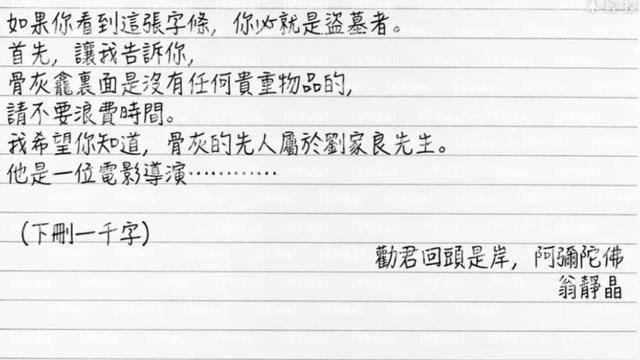 如果你看到這張字條，你必就是盜墓者。
首先，讓我告訴你，
骨灰龕裏面是沒有任何貴重物品的，
請不要浪費時間。
我希望你知道，骨灰的先人屬於劉家良先生。
他是一位電影導演…………
（下刪一千字）
勸君回頭是岸，阿彌陀佛
翁靜晶